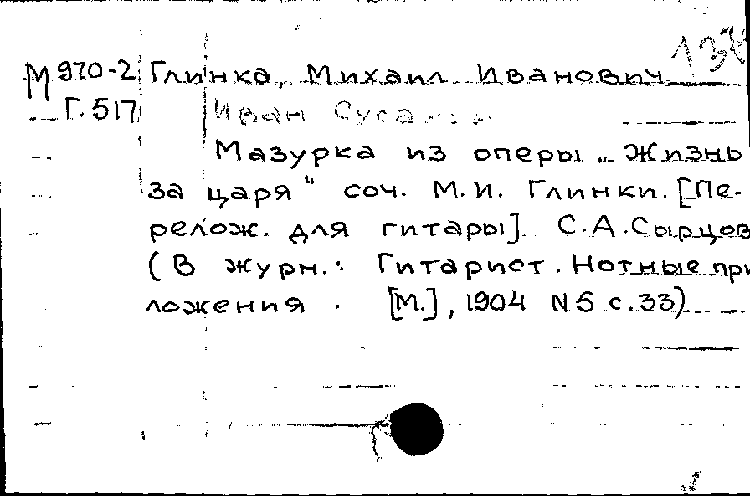 М 970-2 Глинка, Михаил Иванович
Г.517 Иван Суса
Мазурка из оперы „Жизнь
за царя" соч. М.И. Глинки. [Пе-
релож. для гитары] С.А.Сырцов
(В журн.: Гитарист. Нотные при
ложения . [М.], 1904 N5 с.33)